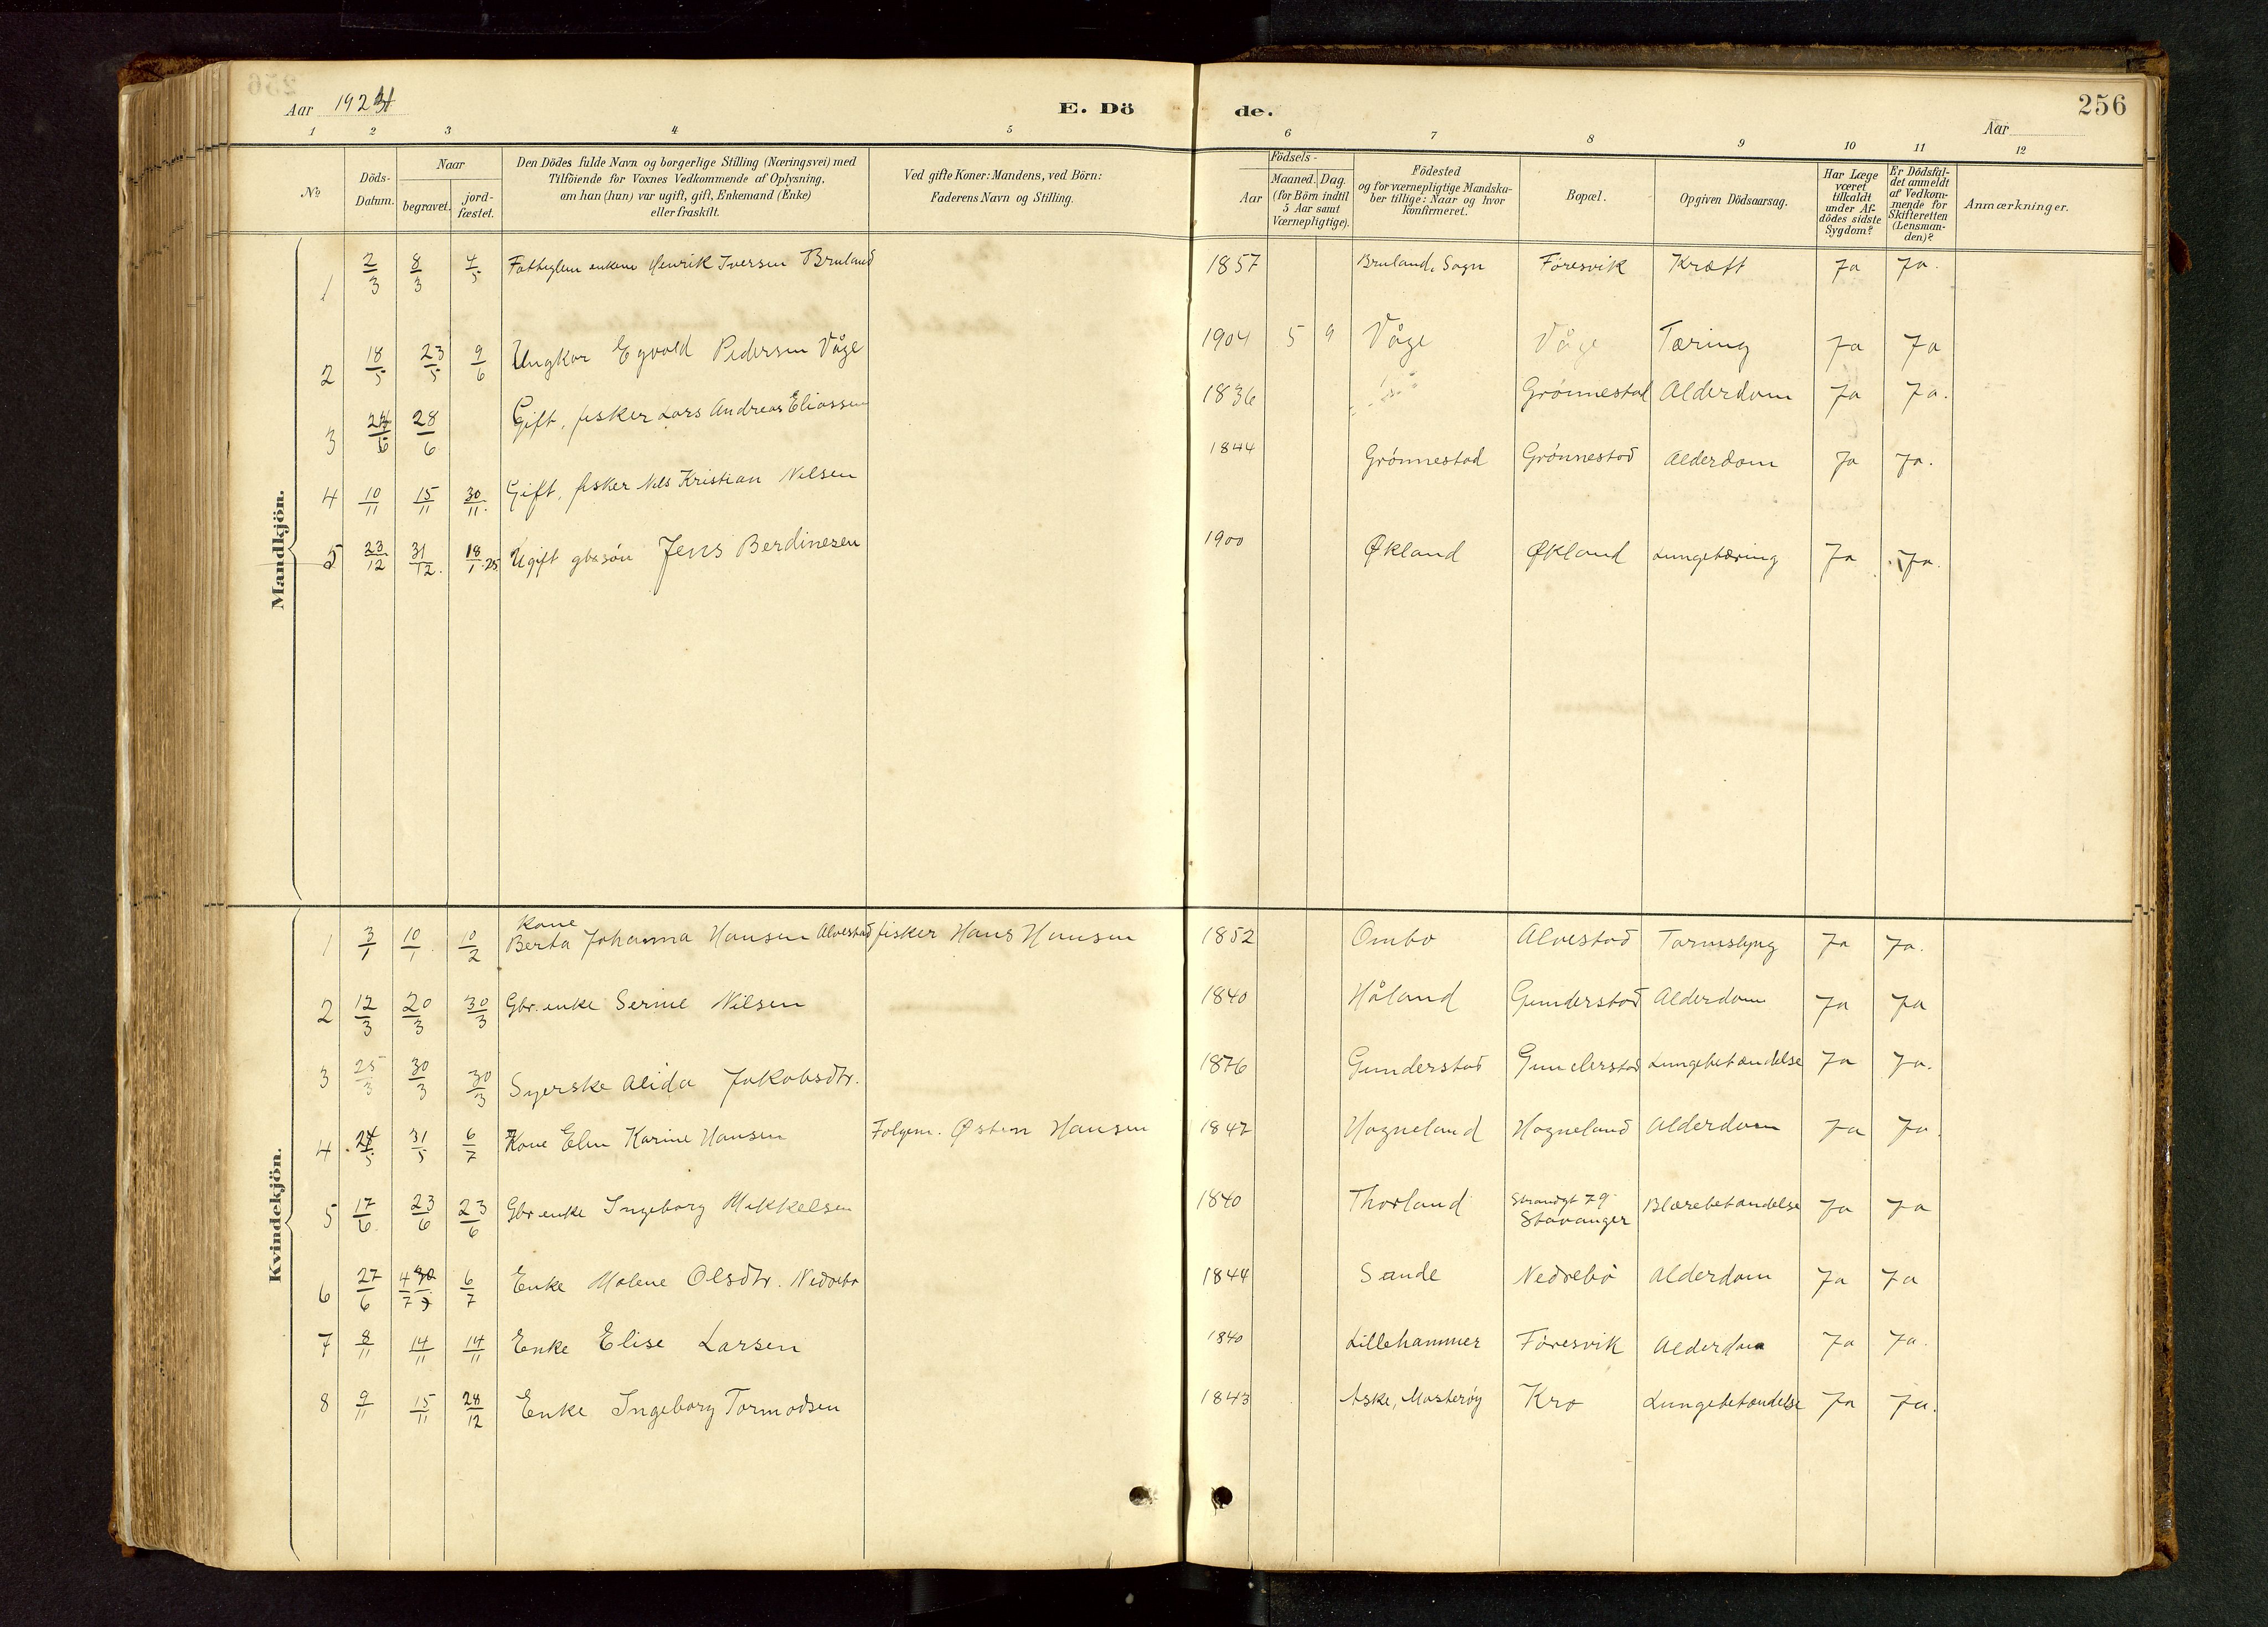 256
Aar 1924
E. Dö
de.
Aar
1 2 3 4 5 6 7 8 9 10 11 12
No.
Döds-Datum.
Naar
begravet.
jord-fæstet.
Den Dödes fulde Navn og borgerlige Stilling (Næringsvei) med
Tilföiende for Voxnes Vedkommende af Oplysning,
om han (hun) var ugift, gift, Enkemand (Enke)
eller fraskilt.
Ved gifte Koner: Mandens, ved Börn:
Faderens Navn og Stilling.
Födsels-
Aar
Maaned. Dag.
(for Börn indtil
5 Aar samt
Værnepligtige).
Födested
og for værnepligtige Mandska-
ber tillige: Naar og hvor
konfirmeret.
Bopæl.
Opgiven Dödsaarsag.
Har Læge
været
tilkaldt
under Af-
dödes sidste
Sygdom?
Er Dödsfal-
det anmeldt
af Vedkom-
mende for
Skifteretten
(Lensman-
den)?
Anmærkninger.
Mandkjön.
1 2/3 8/3 4/5 Henrik Iversen Bruland 1857 Bruland, Sogn Föresvik Kræft Ja Ja.
2 18/5 23/5 9/6 Ungkar Egvald Pedersen Våge 1904 5 9 Våge Våge Tæring Ja Ja
3 24/6 28/6 Gift, fisker Lars Andreas Eliassen 1836 Grönnestad Alderdom Ja Ja.
4 10/11 15/11 30/11. Gift, fisker Nils Kristian Nilsen 1844 Grönnestad Grönnestad Alderdom Ja Ja.
5 23/12 31/12. 18/1.25 Ugift gbrsön Jens Berdinesen 1900 Økland Økland Lungetæring Ja Ja.
Kvindekjön.
1 3/1 10/1. 10/2 Kone
Berta Johanna Hansen Alvestad fisker Hans Hansen 1852 Ombo Alvestad Tarmslyng Ja Ja.
2 12/3 20/3 30/3 Gbr. enke Serine Nilsen 1840 Håland Gunderstad Alderdom Ja Ja
3 25/3 30/3 30/3 Syerske Alida Jakobsdtr. 1876 Gunderstad Gunderstad Lungebetændelse Ja Ja.
4 24/5 31/5 6/7 Kone Elen Karine Hansen Folgem. Østen Hansen 1847 Hogneland Hogneland Alderdom Ja Ja.
5 17/6. 23/6 23/6 Gbr enke Ingeborg Mikkelsen 1840 Thorland Strandgt 79
Stavanger Blærebetændelse Ja Ja
6 27/6 4/7 6/7 Enke Malene Olsdtr. Nedrebö 1844 Sande Nedrebö Alderdom Ja Ja
7 8/11 14/11 14/11 Enke Elise Larsen 1840 Lillehammer Föresvik Alderdom Ja Ja.
8 9/11 15/11 28/12 Enke Ingeborg Tormodsen 1843 Aske, Mosteröy Kro Lungebetændelse Ja Ja.